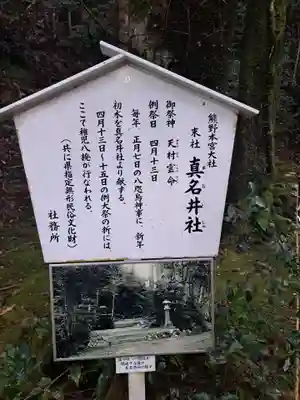 熊野本宮大社
末社 真名井社
御祭神 天村雲命
例祭日 四月十三日
毎年 正月七日の八咫烏神事に、新年
初水を真名井社より献する。
四月十三日〜十五日の例大祭の折には、
ここで稚児八撥が行なわれる。
(共に県指定無形民俗文化財)
社務所